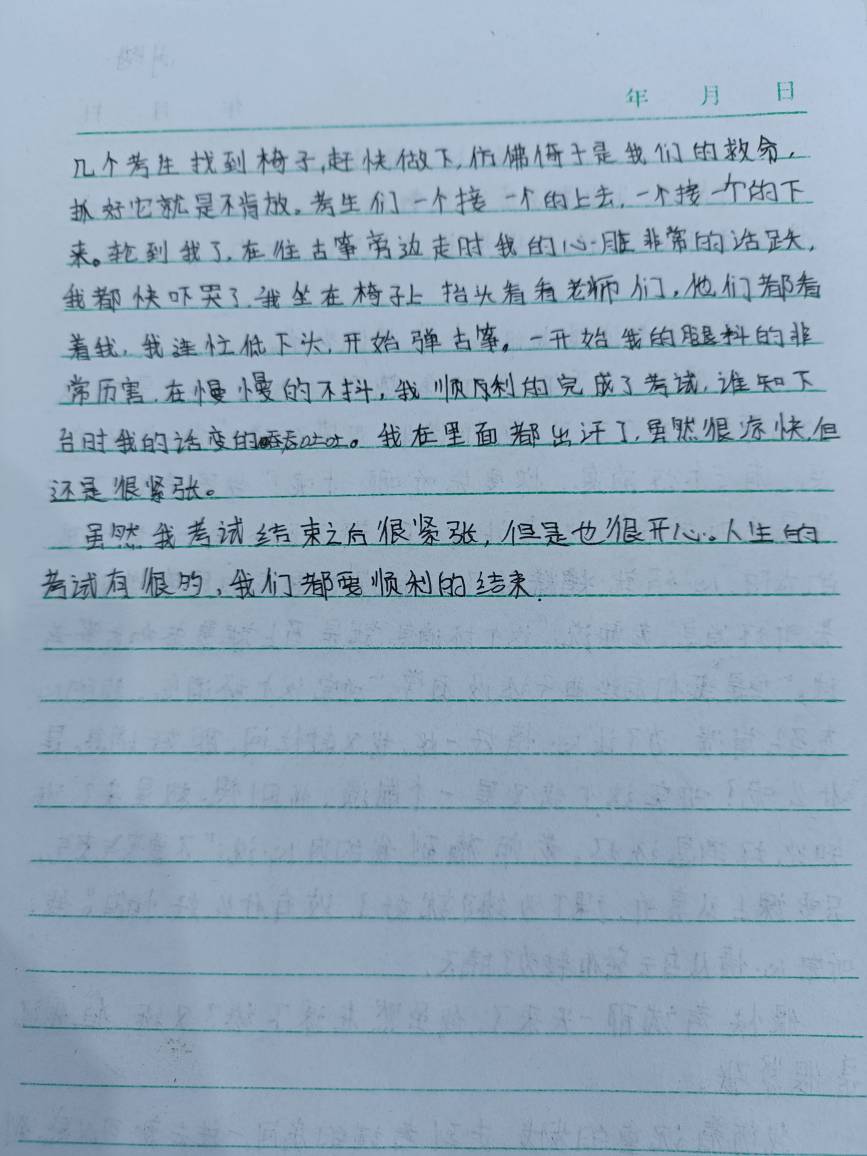 年 月 日
几个考生找到椅子,赶快做下,仿佛椅子是我们的救命,
抓好它就是不肯放。考生们一个接一个的上去,一个接一个的下
来。轮到我了,在往古筝旁边走时我的心脏非常的活跃,
我都快吓哭了,我坐在椅子上抬头看看老师们,他们都看
着我,我连忙低下头,开始弹古筝。一开始我的腿抖的非
常历害,在慢慢的不抖,我顺利的完成了考试,谁知下
台时我的话变的。我在里面都出汗了,虽然很凉快,但
还是很紧张。
虽然我考试结束之后很紧张,但是也很开心。人生的
考试有很的,我们都要顺利的结束.